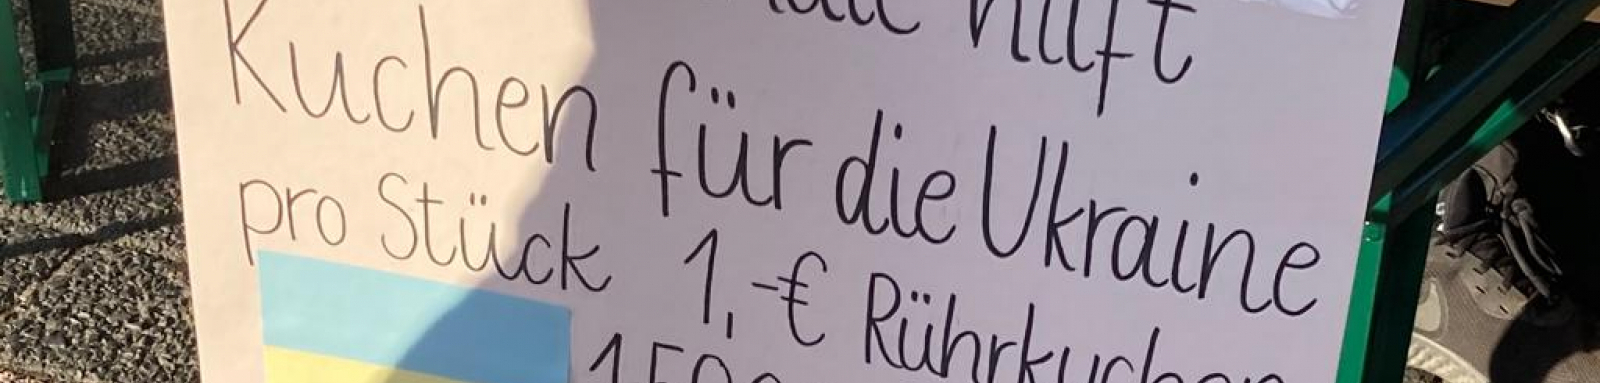 hilft
Kuchen für die Ukraine
pro Stück 1,-€ Rührkuchen